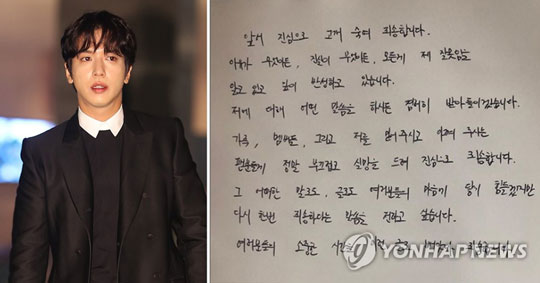 앞서 진심으로 고개 숙여 죄송합니다.
이유가 무엇이든, 진실이 무엇이든, 모든게 제 잘못임을
알고 있고 깊이 반성하고 있습니다.
저에 대해 어떤 말씀을 하시든 겸허히 받아들이겠습니다.
가족, 멤버들, 그리고 저를 믿어주시고 아껴 주시는
팬분들께 정말 부끄럽고 실망을 드려 진심으로 죄송합니다.
그 어떠한 말로도, 글로도 여러분들의 마음이 담기 힘들겠지만
다시 한번 죄송하다는 말씀을 전하고 싶습니다.
여러분들의 소중한 시간을 이런 글로
YONHAPNEWS